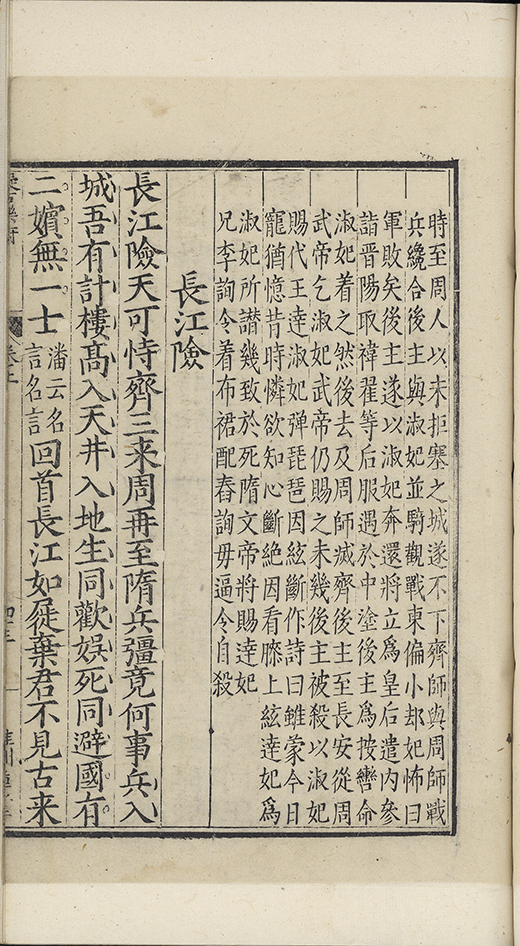 時至周人以未拒塞之城遂不下齊師與周師戰
兵纔合後主與淑妃並騎觀戰東偏小却妃怖曰
軍敗矣後主遂以淑妃奔還將立爲皇后遣内參
詣晋陽取褘翟等后服遇於中塗後主爲按轡命
淑妃着之然後去及周師滅齊後主至長安從周
武帝乞淑妃武帝仍賜之未幾後主被殺以淑妃
賜代王達淑妃彈琵琶因絃斷作詩曰雖蒙今日
寵猶憶昔時憐欲知心斷絶因看膝上絃達妃爲
淑妃所譖幾致於死隋文帝將賜達妃
兄李詢令着布裙配舂詢母逼令自殺
長江險
長江險天可恃齊三来周再至隋兵彊竟何事兵入
城吾有計樓髙入天井入地生同歡娱死同避國有
二嬪無一士潘云名言名言回首長江如屣棄君不見古来